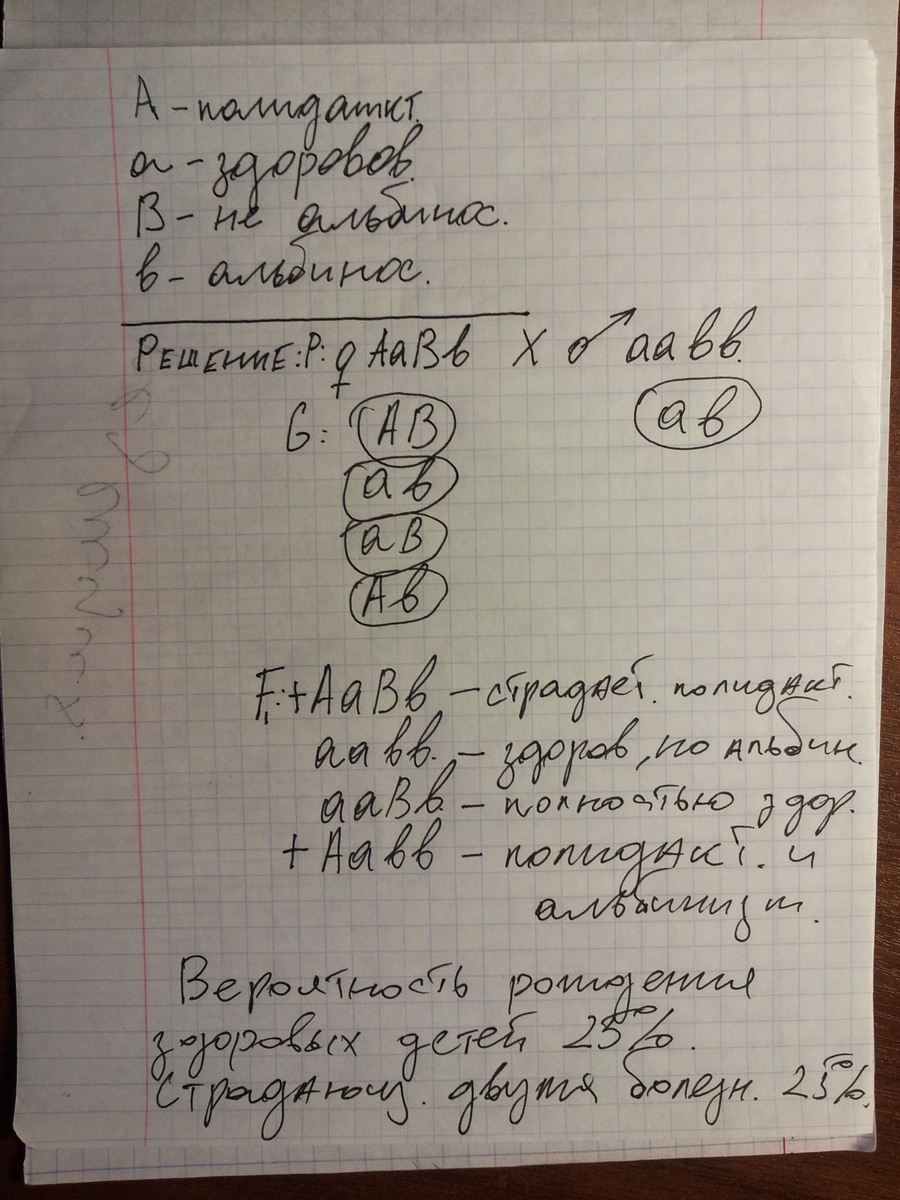 А - полидакт.
а - здоровов.
В - не альбинос.
в - альбинос.
Решение: Р: ♀ АаВв X ♂ аавв.
G: АВ ав
ав
аВ
Ав
F₁: + АаВв - страдает. полидакт.
аавв. - здоров, но альбин.
ааВв. - полностью здор.
+ Аавв - полидакт. и
альбинизм.
Вероятность рождения
здоровых детей 25%.
Страдающ. двумя болезн. 25%.